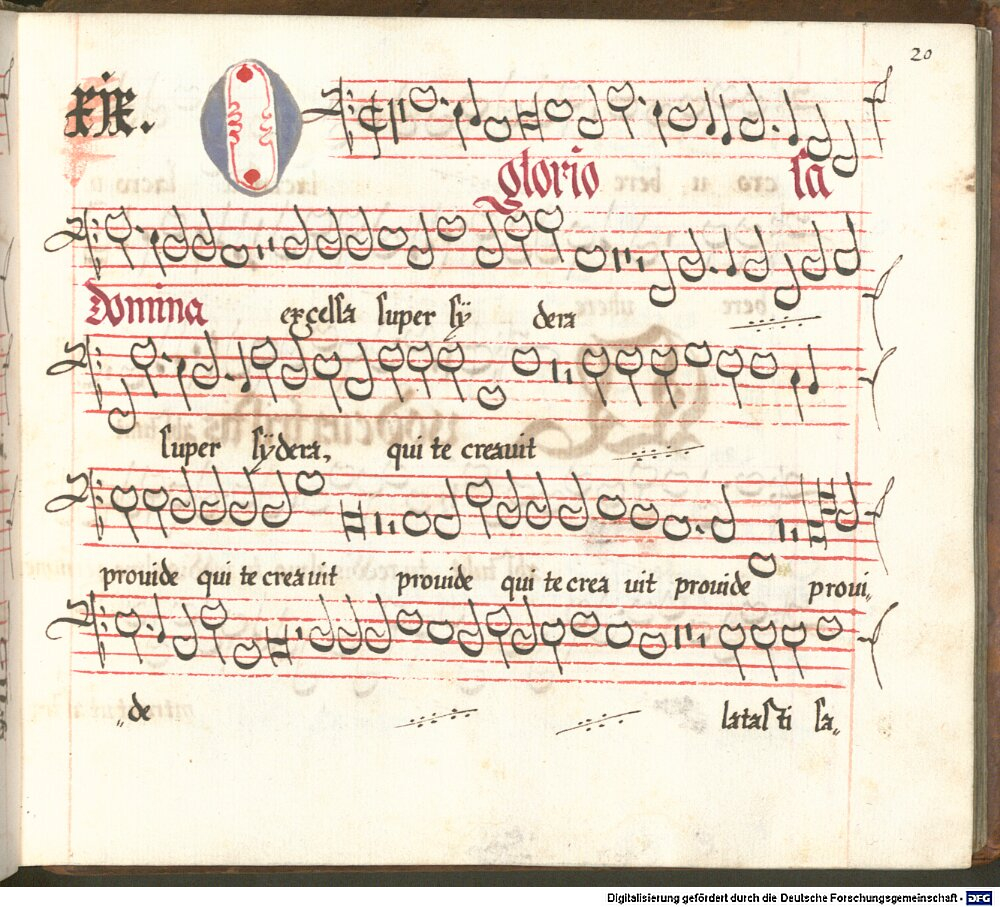 20
xix.
O gloriosa
Domina excelsa super sÿdera
super sÿdera, qui te creauit
prouide qui te creauit prouide qui te creauit prouide proui„
„de latasti sa„
Digitalisierung gefördert durch die Deutsche Forschungsgemeinschaft - DFG